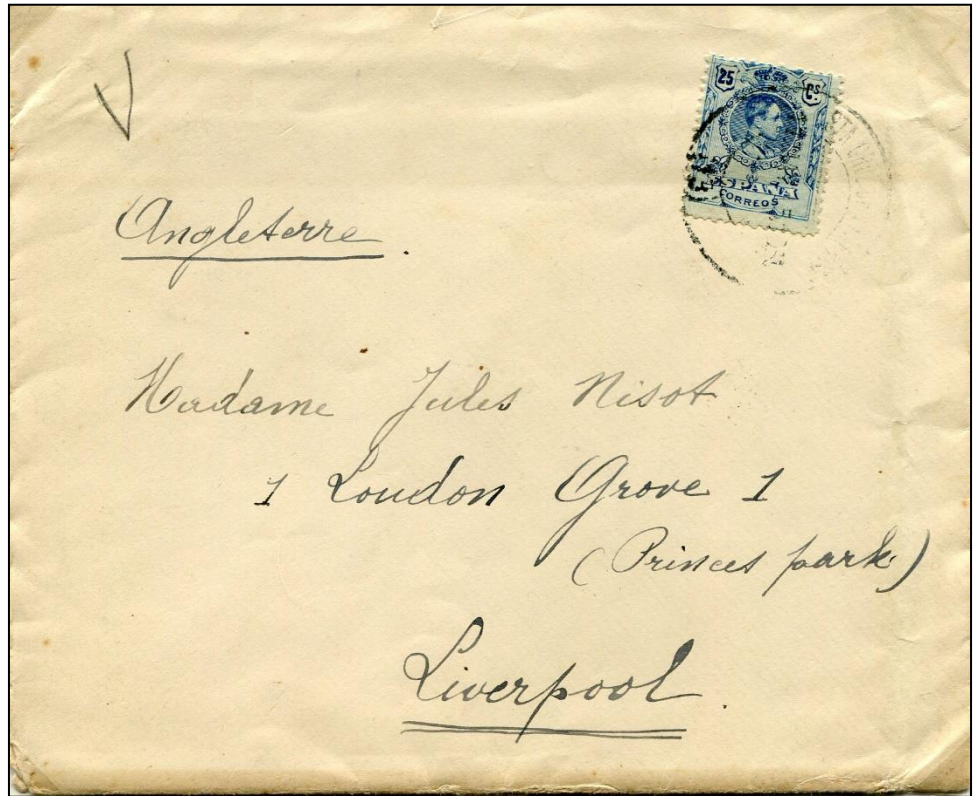 25 Cs
ESPAÑA
CORREOS
Angleterre.
Madame Jules Nisot
1 Loudon Grove 1
(Princes park)
Liverpool.